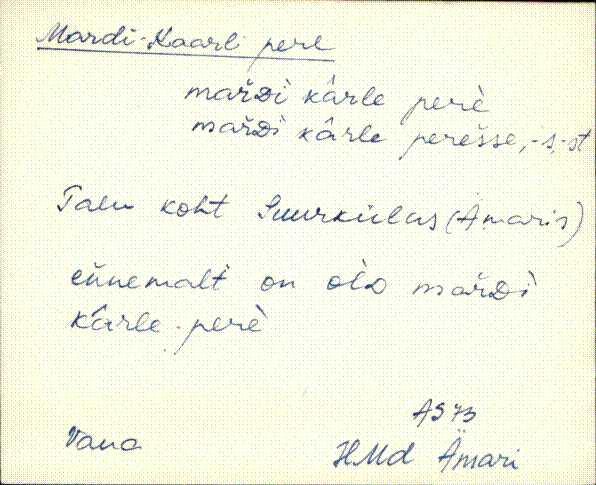 Mardi-Kaarli pere
mař​Dì kârle perè
mařDì kârle perešse, -s, -st
Talu koht Suurkülas (Ämaris)
eǹnemalt on olD mařDì
kârle perè
AS 73
Vana
HMd Ämari